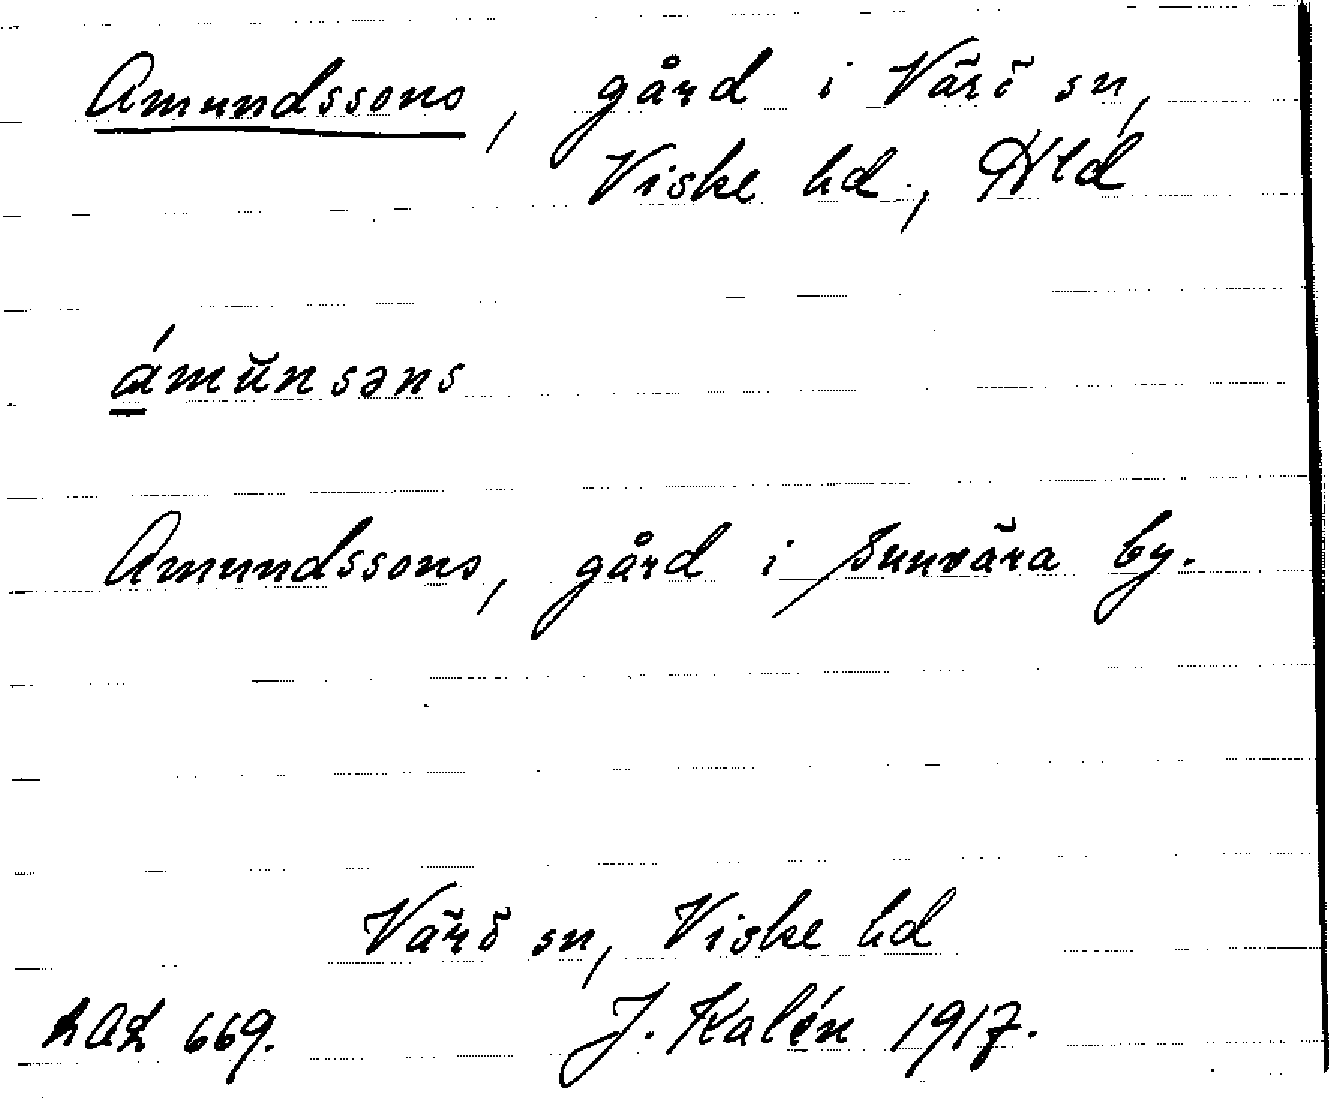 Amundssons, gård i Värö sn,
Viske hd., Hld
ámŭnsəns
Amundssons, gård i Sunvära by.
Värö sn, Viske hd
669. J. Kalén 1917.